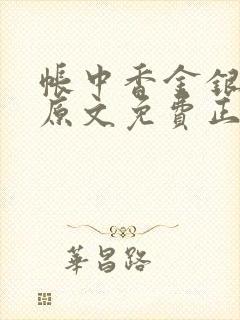 帳中香金銀
原文免費正
華昌路